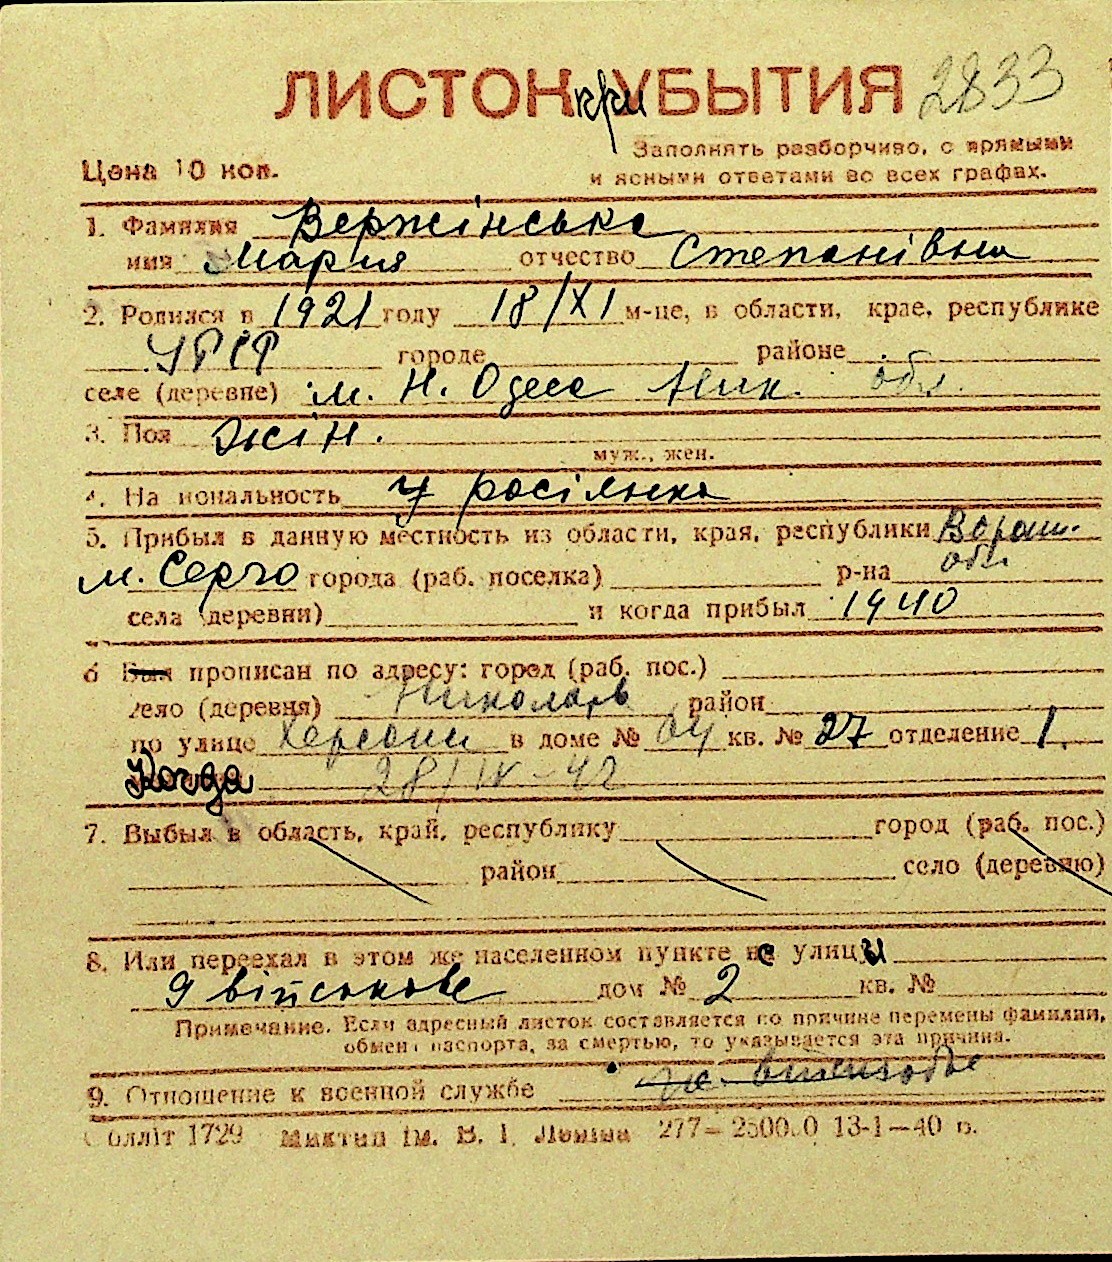 ЛИСТОК при УБЫТИЯ 2833
Заполнять разборчиво, с прямыми
Цена 10 коп.
и ясными ответами во всех графах.
1. Фамилия Вержінська
имя Мария отчество Степанівна
2. Родился в 1921 году 18/XI м-це, в области, крае, республике
УРСР городе районе
селе (деревне) м. Н. Одеса Ник. обл.
3. Пол жін.
муж., жен.
4. На иональность У росіянка
5. Прибыл в данную местность из области, края, республики Ворош.
обл.
м. Серго города (раб. поселка) р-на
села (деревни) и когда прибыл 1940
6 Был прописан по адресу: город (раб. пос.)
село (деревня) Николаев район
по улице Херсони в доме № 64 кв. № 27 отделение 1.
Когда 28/IV-42
7. Выбыл в область, край, республику город (раб. пос.)
район село (деревню)
8. Или переехал в этом же населенном пункте с улицы
9 військове дом № 2 кв. №
Примечание. Если адресный листок составляется по причине перемены фамилии,
обмена паспорта, за смертью, то указывается эта причина.
9. Отношение к военной службе
Облліт 1729 Миктип ім. В. І. Леніна 277— 13-1—40 р.